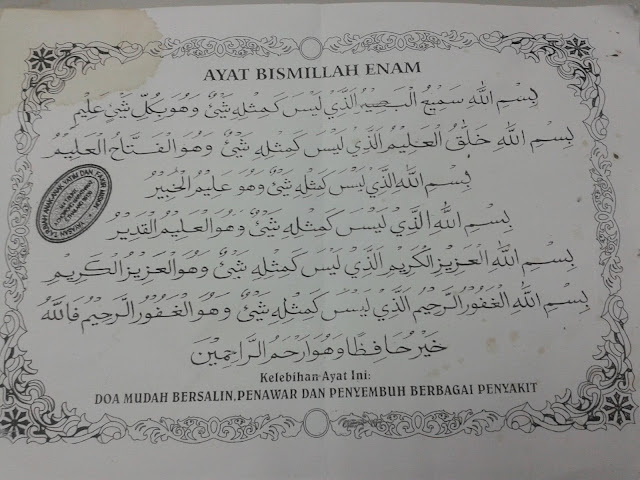 AYAT BISMILLAH ENAM
بِسْمِ اللهِ سَمِيْعُ الْبَصِيْرُ الَّذِيْ لَيْسَ كَمِثْلِهِ شَيْئٌ وَهُوَ بِكُلِّ شَيْئٍ عَلِيْمٍ
بِسْمِ اللهِ خَلَقُ الْعَلِيْمُ الَّذِيْ لَيْسَ كَمِثْلِهِ شَيْئٌ وَهُوَ الْفَتَّاحُ الْعَلِيْمُ
بِسْمِ اللهِ الَّذِيْ لَيْسَ كَمِثْلِهِ شَيْئٌ وَهُوَ عَلِيْمُ الْخَبِيْرُ
بِسْمِ اللهِ الَّذِيْ لَيْسَ كَمِثْلِهِ شَيْئٌ وَهُوَ الْعَلِيْمُ الْقَدِيْرُ
بِسْمِ اللهِ الْعَزِيْزِ الْكَرِيْمِ الَّذِيْ لَيْسَ كَمِثْلِهِ شَيْئٌ وَهُوَ الْعَزِيْزُ الْكَرِيْمِ
بِسْمِ اللهِ الْغَفُوْرُ الرَّحِيْمُ الَّذِيْ لَيْسَ كَمِثْلِهِ شَيْئٌ وَهُوَ الْغَفُوْرُ الرَّحِيْمُ فَاللَّهُ
خَيْرٌ حَافِظًا وَهُوَ اَرْحَمُ الرَّاحِمِيْنَ
Kelebihan Ayat Ini:
DOA MUDAH BERSALIN, PENAWAR DAN PENYEMBUH BERBAGAI PENYAKIT